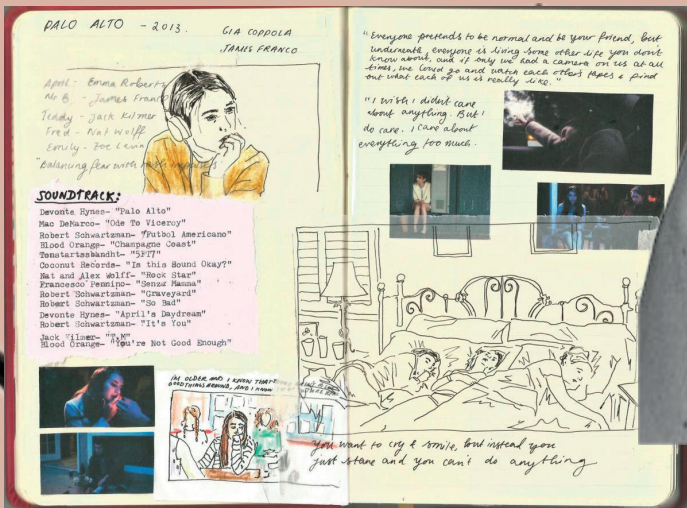 PALO ALTO - 2013.
GIA COPPOLA
JAMES FRANCO
April - Emma Roberts
Mr B. - James Franco
Teddy - Jack Kilmer
Fred - Nat Wolff
Emily - Zoe Levin
"Balancing fear with
SOUNDTRACK:
Devonte Hynes- "Palo Alto"
Mac DeMarco- "Ode To Viceroy"
Robert Schwartzman- "Futbol Americano"
Blood Orange- "Champagne Coast"
Tonstartssbandht- "5FT7"
Coconut Records- "Is this Sound Okay?"
Nat and Alex Wolff- "Rock Star"
Francesco Pennino- "Senza Mamma"
Robert Schwartzman- "Graveyard"
Robert Schwartzman- "So Bad"
Devonte Hynes- "April's Daydream"
Robert Schwartzman- "It's You"
Jack Kilmer- "T.M"
Blood Orange- "You're Not Good Enough"
I'M OLDER AND I KNOW THAT
GOOD THINGS AROUND, AND I KNOW
"Everyone pretends to be normal and be your friend, but
underneath, everyone is living some other life you don't
know about, and if only we had a camera on us at all
times, we could go and watch each others tapes & find
out what each of us is really like."
"I wish I didn't care
about anything. But I
do care. I care about
everything too much.
You want to cry & smile, but instead you
just stare and you can't do anything